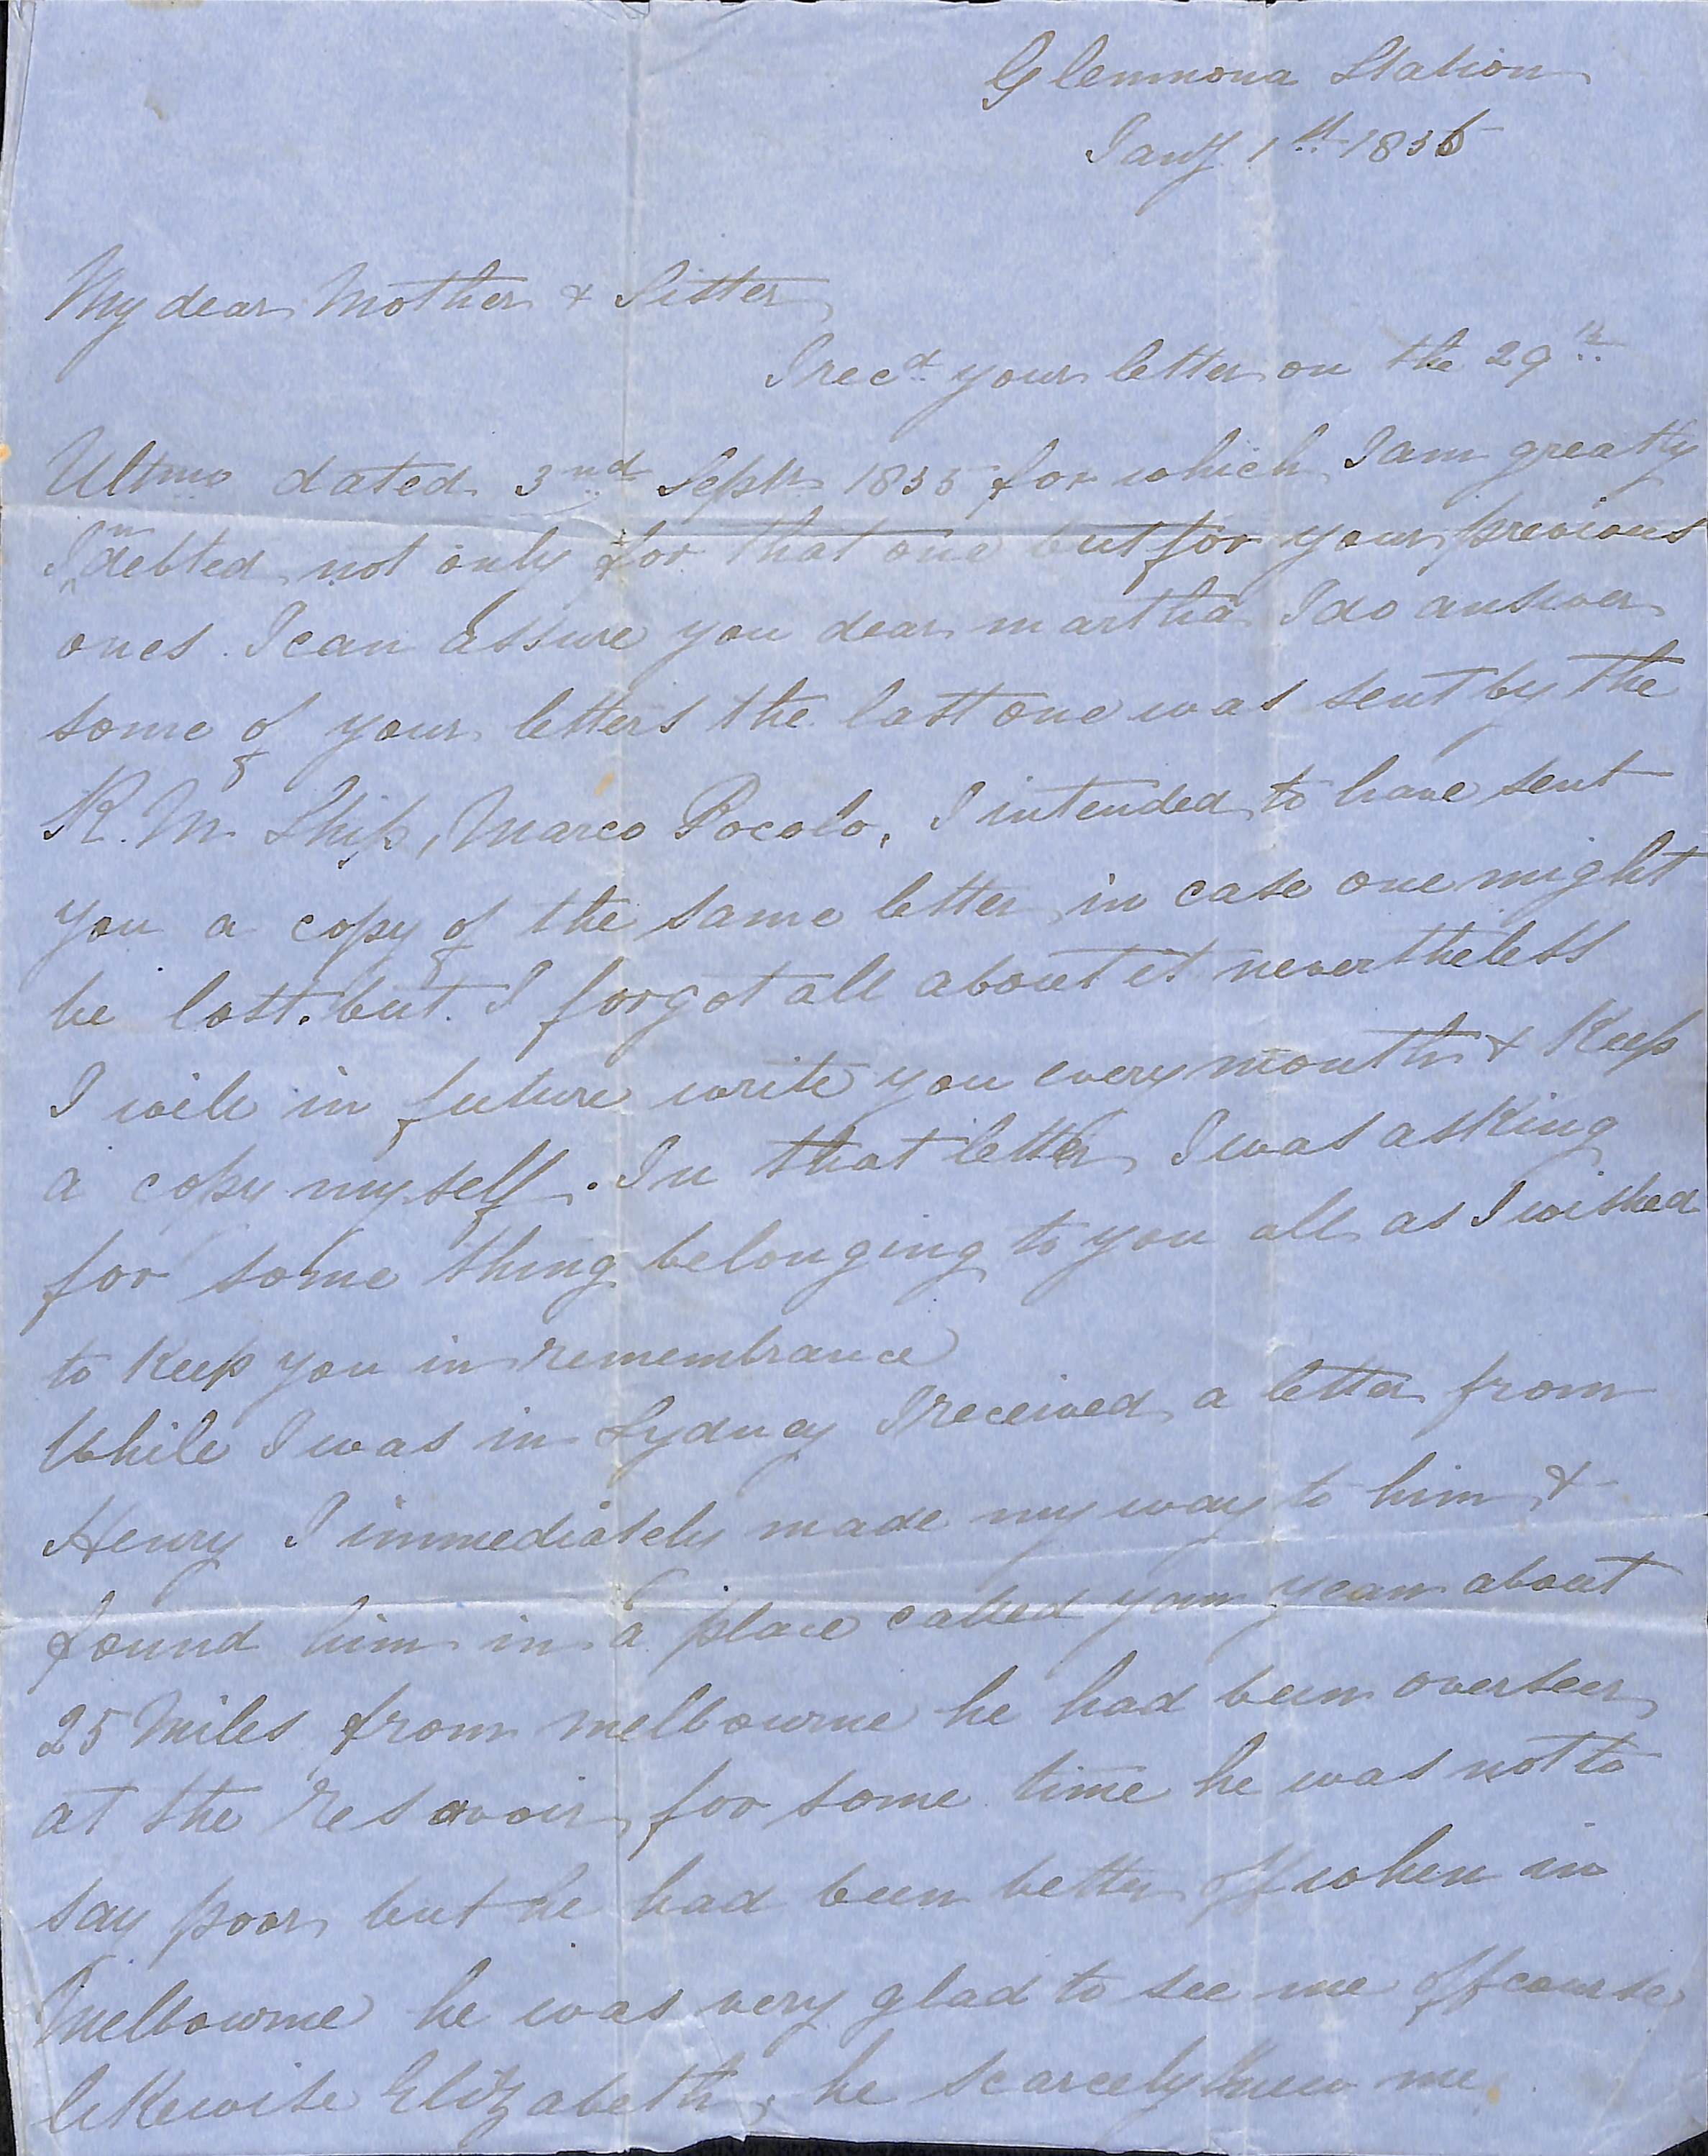 Glenmona Station
Jany 1st 1856
My dear Mother & Sister
I recd your letter on the 29th
Ultmo dated 3rd Septr 1855 for which I am greatly
Indebted not only for that one but for your previous
ones. I can assure you dear martha I do answer
some of your letters the last one was sent by the
R. M. Ship, Marco Pocolo, I intended to have sent
you a copy of the same letter in case one might
be lost. but I forgot all about it nevertheless
I will in future write you every month & Keep
a copy myself. In that letter I was asking
for some thing belonging to you all as I wished
to Keep you in remembrance
While I was in Sydney I received a letter from
Henry I immediately made my way to him &
found him in a place called yan yean about
25 Miles from melbourne he had been overseer
at the resavoir for some time he was not to
say poor but he had been better off when in
Melbourne he was very glad to see me offcourse
likewise Elizabeth, he scarcely knew me.